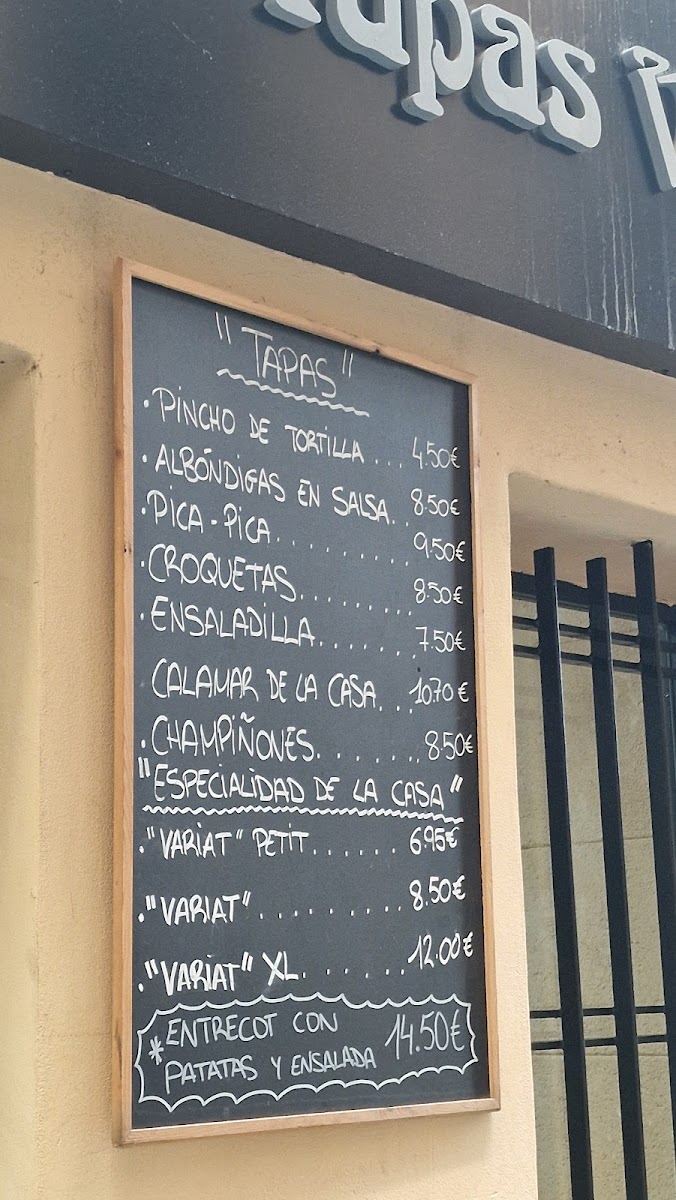 Tapas
" TAPAS "
· PINCHO DE TORTILLA ... 4.50€
· ALBÓNDIGAS EN SALSA .. 8.50€
· PICA - PICA ......... 9.50€
· CROQUETAS ........ 8.50€
· ENSALADILLA ....... 7.50€
CALAMAR DE LA CASA ... 10.70€
· CHAMPIÑONES ....... 8.50€
"ESPECIALIDAD DE LA CASA"
· "VARIAT" PETIT ...... 6.95€
· "VARIAT" ......... 8.50€
· "VARIAT" XL ....... 12.00€
* ENTRECOT CON
PATATAS Y ENSALADA 14.50€